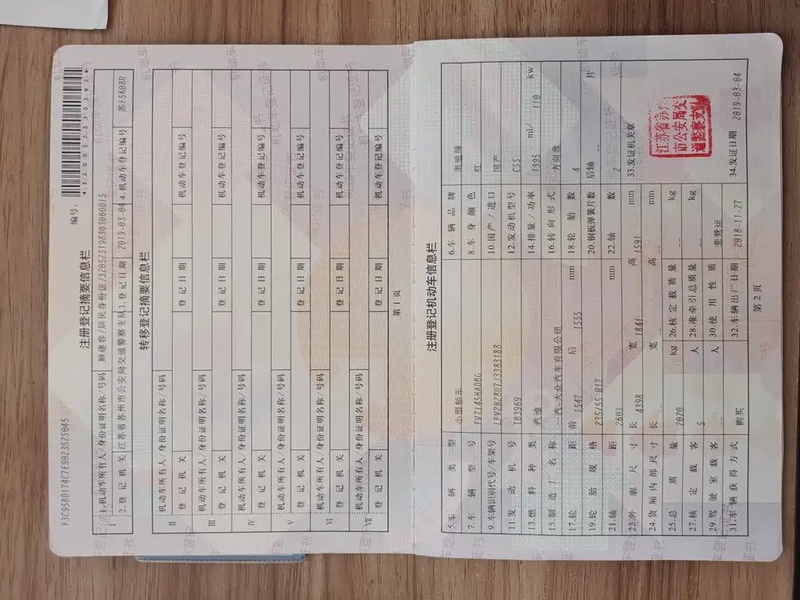 编号：
注册登记摘要信息栏
I
1.机动车所有人/身份证明名称/号码
2.登记机关 江苏省苏州市公安局交通警察支队 3.登记日期 2019-03-04 4.机动车登记编号
转移登记摘要信息栏
II 机动车所有人/身份证明名称/号码
登记机关 登记日期 机动车登记编号
III 机动车所有人/身份证明名称/号码
登记机关 登记日期 机动车登记编号
IV 机动车所有人/身份证明名称/号码
登记机关 登记日期 机动车登记编号
V 机动车所有人/身份证明名称/号码
登记机关 登记日期 机动车登记编号
VI 机动车所有人/身份证明名称/号码
登记机关 登记日期 机动车登记编号
VII 机动车所有人/身份证明名称/号码
登记机关 登记日期 机动车登记编号
第 1 页
注册登记机动车信息栏
5.车辆类型 小型轿车 6.车辆品牌 奥迪牌
7.车辆型号 8.车身颜色 红
9.车辆识别代号/车架号 10.国产/进口 国产
11.发动机号 12.发动机型号 CSS
13.燃料种类 汽油 14.排量/功率 1395 ml/ 110 kw
15.制造厂名称 一汽-大众汽车有限公司 16.转向形式 方向盘
17.轮距 前 1547 后 1555 mm 18.轮胎数 4
19.轮胎规格 235/55 R17 20.钢板弹簧片数 后轴 -- 片
21.轴距 2603 mm 22.轴数 2
23.外廓尺寸 长 4398 宽 1841 高 1591 mm 33.发证机关章
24.货厢内部尺寸 长 -- 宽 -- 高 -- mm
25.总质量 2020 kg 26.核定载质量 -- kg
27.核定载客 5 人 28.准牵引总质量 -- kg
29.驾驶室载客 -- 人 30.使用性质 非营运
31.车辆获得方式 购买 32.车辆出厂日期 2018-11-27 34.发证日期 2019-03-04
第 2 页